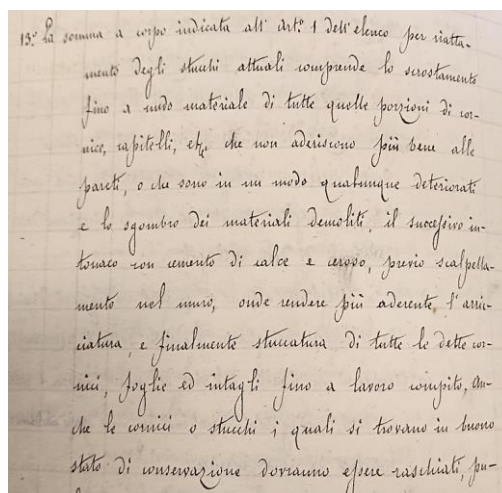 13.º La somma a corpo indicata all' art.º 1 dell'elenco per riatta-
mento degli stucchi attuali comprende lo scrostamento
fino a nudo materiale di tutte quelle porzioni di cor-
nice, capitelli, etc. che non aderiscono più bene alle
pareti, o che sono in un modo qualunque deteriorati
e lo sgombro dei materiali demoliti, il successivo in-
tonaco con cemento di calce e ceroso, previo scalpella-
mento nel muro, onde rendere più aderente l'arric-
ciatura, e finalmente stuccatura di tutte le dette cor-
nici, foglie ed intagli fino a lavoro compito, An-
che le cornici o stucchi i quali si trovano in buono
stato di conservazione dovranno essere raschiati, pu-